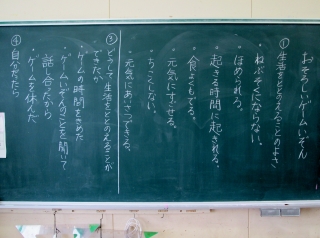 おそろしいゲームいぞん
①生活をととのえることのよさ
・ねぶそくにならない。
・ほめられる。
・起きる時間に起きれる。
・食よくもでる。
・元気にすごせる。
・ちこくしない。
・元気にあいさつできる。
③どうして生活をととのえることが
できたか
・ゲームの時間をきめた
・ゲームいぞんのことを聞いて
・話し合ったから
・ゲームを休んだ
④自分だったら